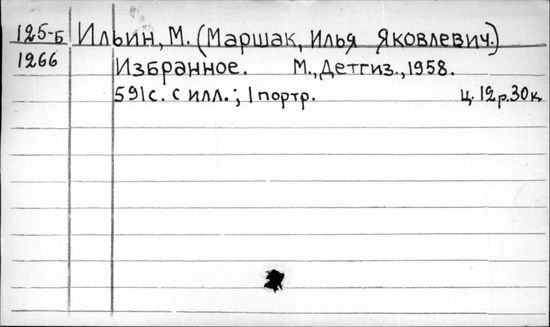 125-Б Ильин, М. (Маршак, Илья Яковлевич.)
1266 Избранное. М., Детгиз., 1958.
591с. с илл.; 1 портр. Ц. 12р.30к.